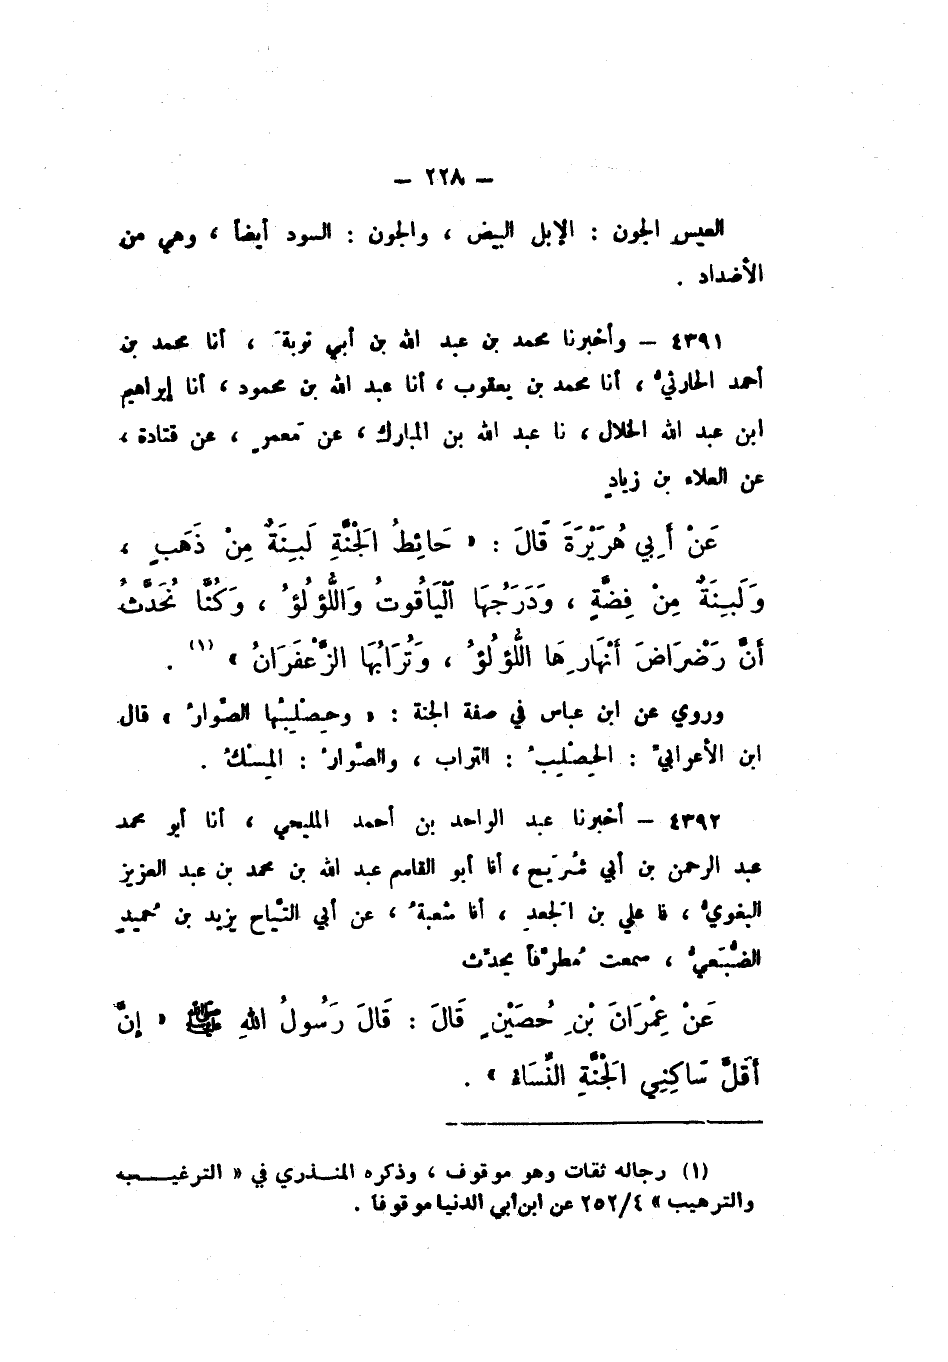 — ٢٢٨ —
العيس الجون : الإبل البيض ، والجون : السود أيضاً ، وهي من
الأضداد .
٤٣٩١ — وأخبرنا محمد بن عبد الله بن أبي توبة َ ، أنا محمد بن
أحمد الحارثيُّ ، أنا محمد بن يعقوب ، أنا عبد الله بن محمود ، أنا إبراهيم
ابن عبد الله الخلال ، نا عبد الله بن المبارك ، عن مَعمرٍ ، عن قتادة ،
عن العلاء بن زيادٍ
عَنْ أَبِي هُرَيْرَةَ قَالَ : « حَائِطُ الْجَنَّةِ لَبِنَةٌ مِنْ ذَهَبٍ ،
وَلَبِنَةٌ مِنْ فِضَّةٍ ، وَدَرَجُهَا الْيَاقُوتُ وَاللُّؤْلُؤُ ، وَكُنَّا نُحَدَّثُ
أَنَّ رَضْرَاضَ أَنْهَارِهَا اللُّؤْلُؤُ ، وَتُرَابُهَا الزَّعْفَرَانُ » (١) .
وروي عن ابن عباس في صفة الجنة : « وحِصْلِبُها الصُّوارُ » قال
ابن الأعرابيِّ : الحِصْلِبُ : التراب ، والصُّوارُ : المِسْكُ .
٤٣٩٢ — أخبرنا عبد الواحد بن أحمد المليحي ، أنا أبو محمد
عبد الرحمن بن أبي شُرَيح ، أنا أبو القاسم عبد الله بن محمد بن عبد العزيز
البغويُّ ، نا علي بن الجَعدِ ، أنا شعبةُ ، عن أبي التيَّاح يزيد بن حُميدٍ
الضُّبَعيُّ ، سمعت مُطرِّفاً يحدِّث
عَنْ عِمْرَانَ بْنِ حُصَيْنٍ قَالَ : قَالَ رَسُولُ اللهِ ﷺ « إِنَّ
أَقَلَّ سَاكِنِي الْجَنَّةِ النِّسَاءُ » .
(١) رجاله ثقات وهو موقوف ، وذكره المنـذري في « الترغيـــب
والترهيب » ٢٥٢/٤ عن ابن أبي الدنيا موقوفا .